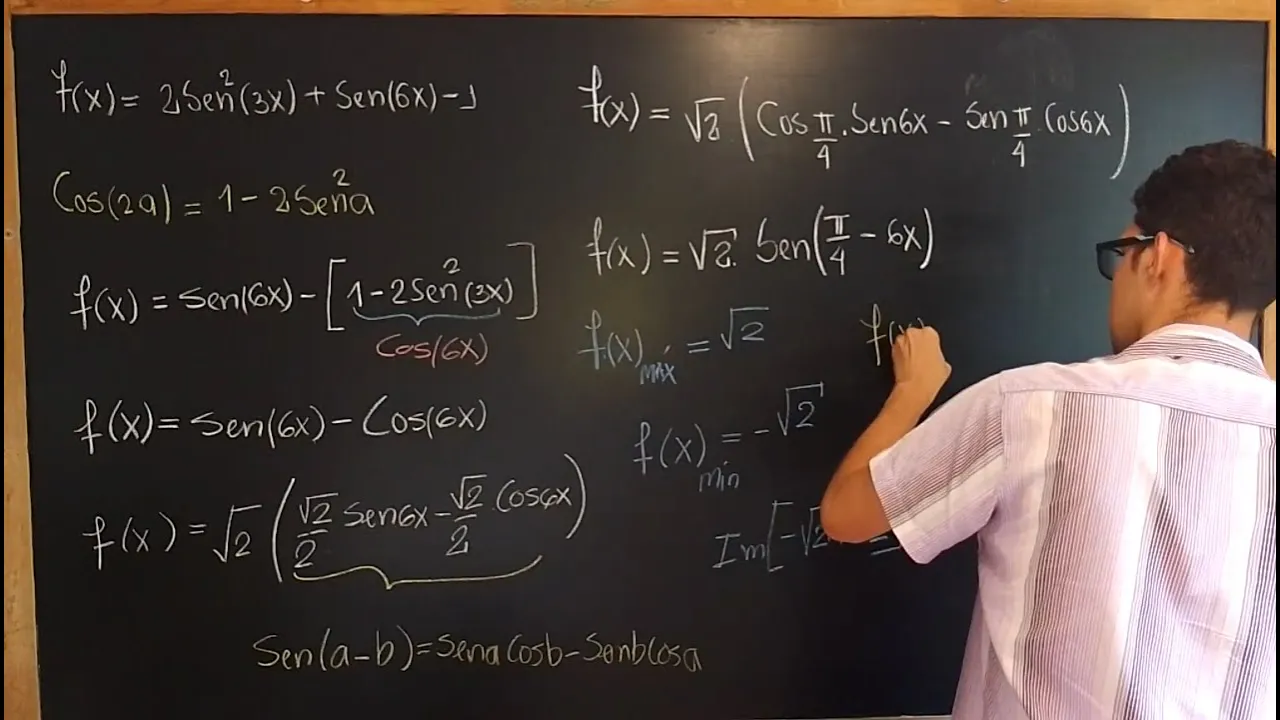 f(x) = 2Sen²(3x) + Sen(6x) - 1
Cos(2a) = 1 - 2Sen²a
f(x) = Sen(6x) - [1 - 2Sen²(3x)]
Cos(6x)
f(x) = Sen(6x) - Cos(6x)
f(x) = √2 (√2/2 Sen6x - √2/2 Cos6x)
Sen(a-b) = Sena Cosb - Senb Cosa
f(x) = √2 (Cos π/4 . Sen6x - Sen π/4 . Cos6x)
f(x) = √2 . Sen(π/4 - 6x)
f(x) máx = √2
f(x) mín = -√2
Im[-√2
f(x)